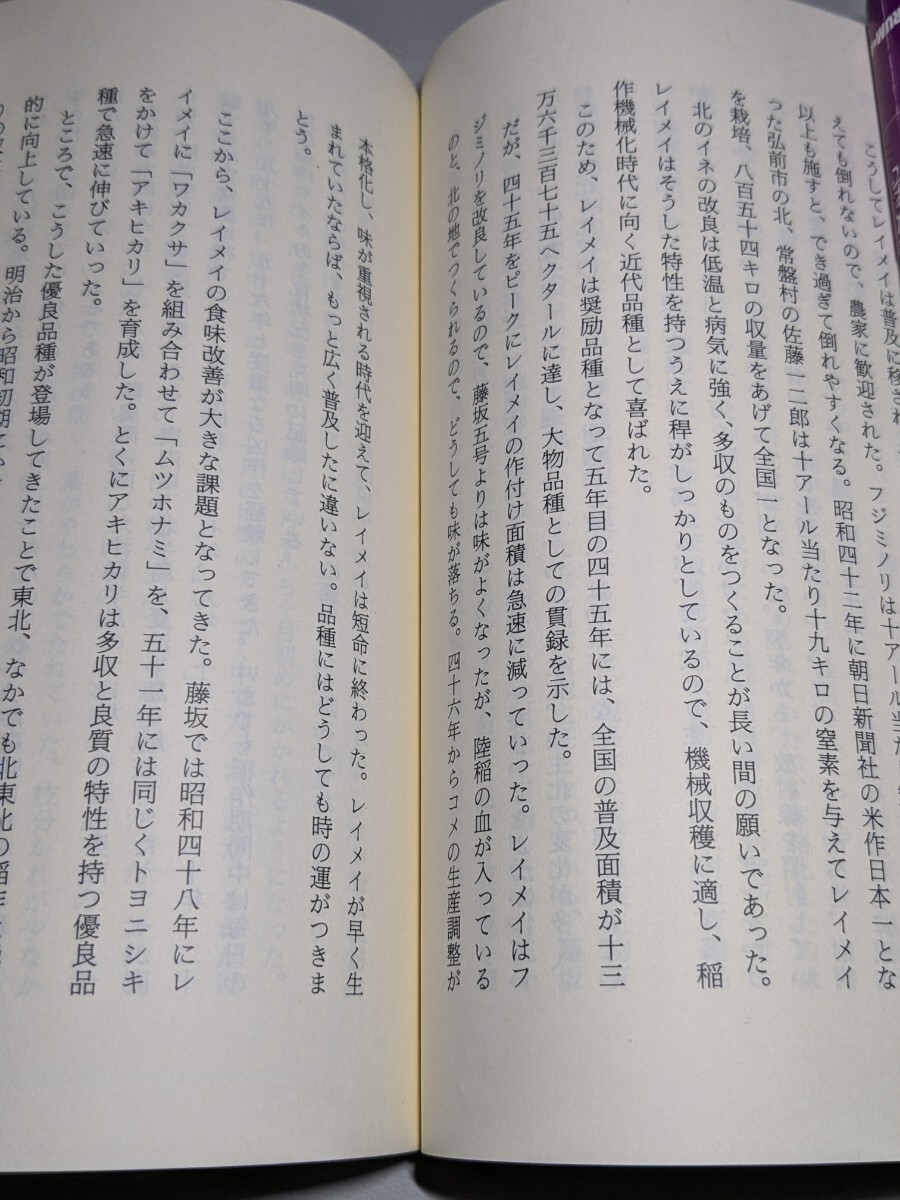 こうしてレイメイは普及に移され
えても倒れないので、農家に歓迎された。フジミノリは十アール当た
以上も施すと、でき過ぎて倒れやすくなる。昭和四十二年に朝日新聞社の米作日本一とな
った弘前市の北、常盤村の佐藤一二郎は十アール当たり十九キロの窒素を与えてレイメイ
を栽培、八百五十四キロの収量をあげて全国一となった。
北のイネの改良は低温と病気に強く、多収のものをつくることが長い間の願いであった。
レイメイはそうした特性を持つうえに稈がしっかりとしているので、機械収穫に適し、稲
作機械化時代に向く近代品種として喜ばれた。
このため、レイメイは奨励品種となって五年目の四十五年には、全国の普及面積が十三
万六千三百七十五ヘクタールに達し、大物品種としての貫録を示した。
だが、四十五年をピークにレイメイの作付け面積は急速に減っていった。レイメイはフ
ジミノリを改良しているので、藤坂五号よりは味がよくなったが、陸稲の血が入っている
のと、北の地でつくられるので、どうしても味が落ちる。四十六年からコメの生産調整が
本格化し、味が重視される時代を迎えて、レイメイは短命に終わった。レイメイが早く生
まれていたならば、もっと広く普及したに違いない。品種にはどうしても時の運がつきま
とう。
ここから、レイメイの食味改善が大きな課題となってきた。藤坂では昭和四十八年にレ
イメイに「ワカクサ」を組み合わせて「ムツホナミ」を、五十一年には同じくトヨニシキ
をかけて「アキヒカリ」を育成した。とくにアキヒカリは多収と良質の特性を持つ優良品
種で急速に伸びていった。
ところで、こうした優良品種が登場してきたことで東北、なかでも北東北の稲作は
的に向上している。明治から昭和初期に